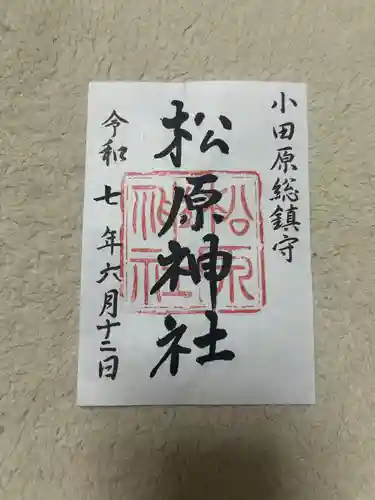 小田原総鎮守
松原神社
令和七年六月十二日
松原
神社